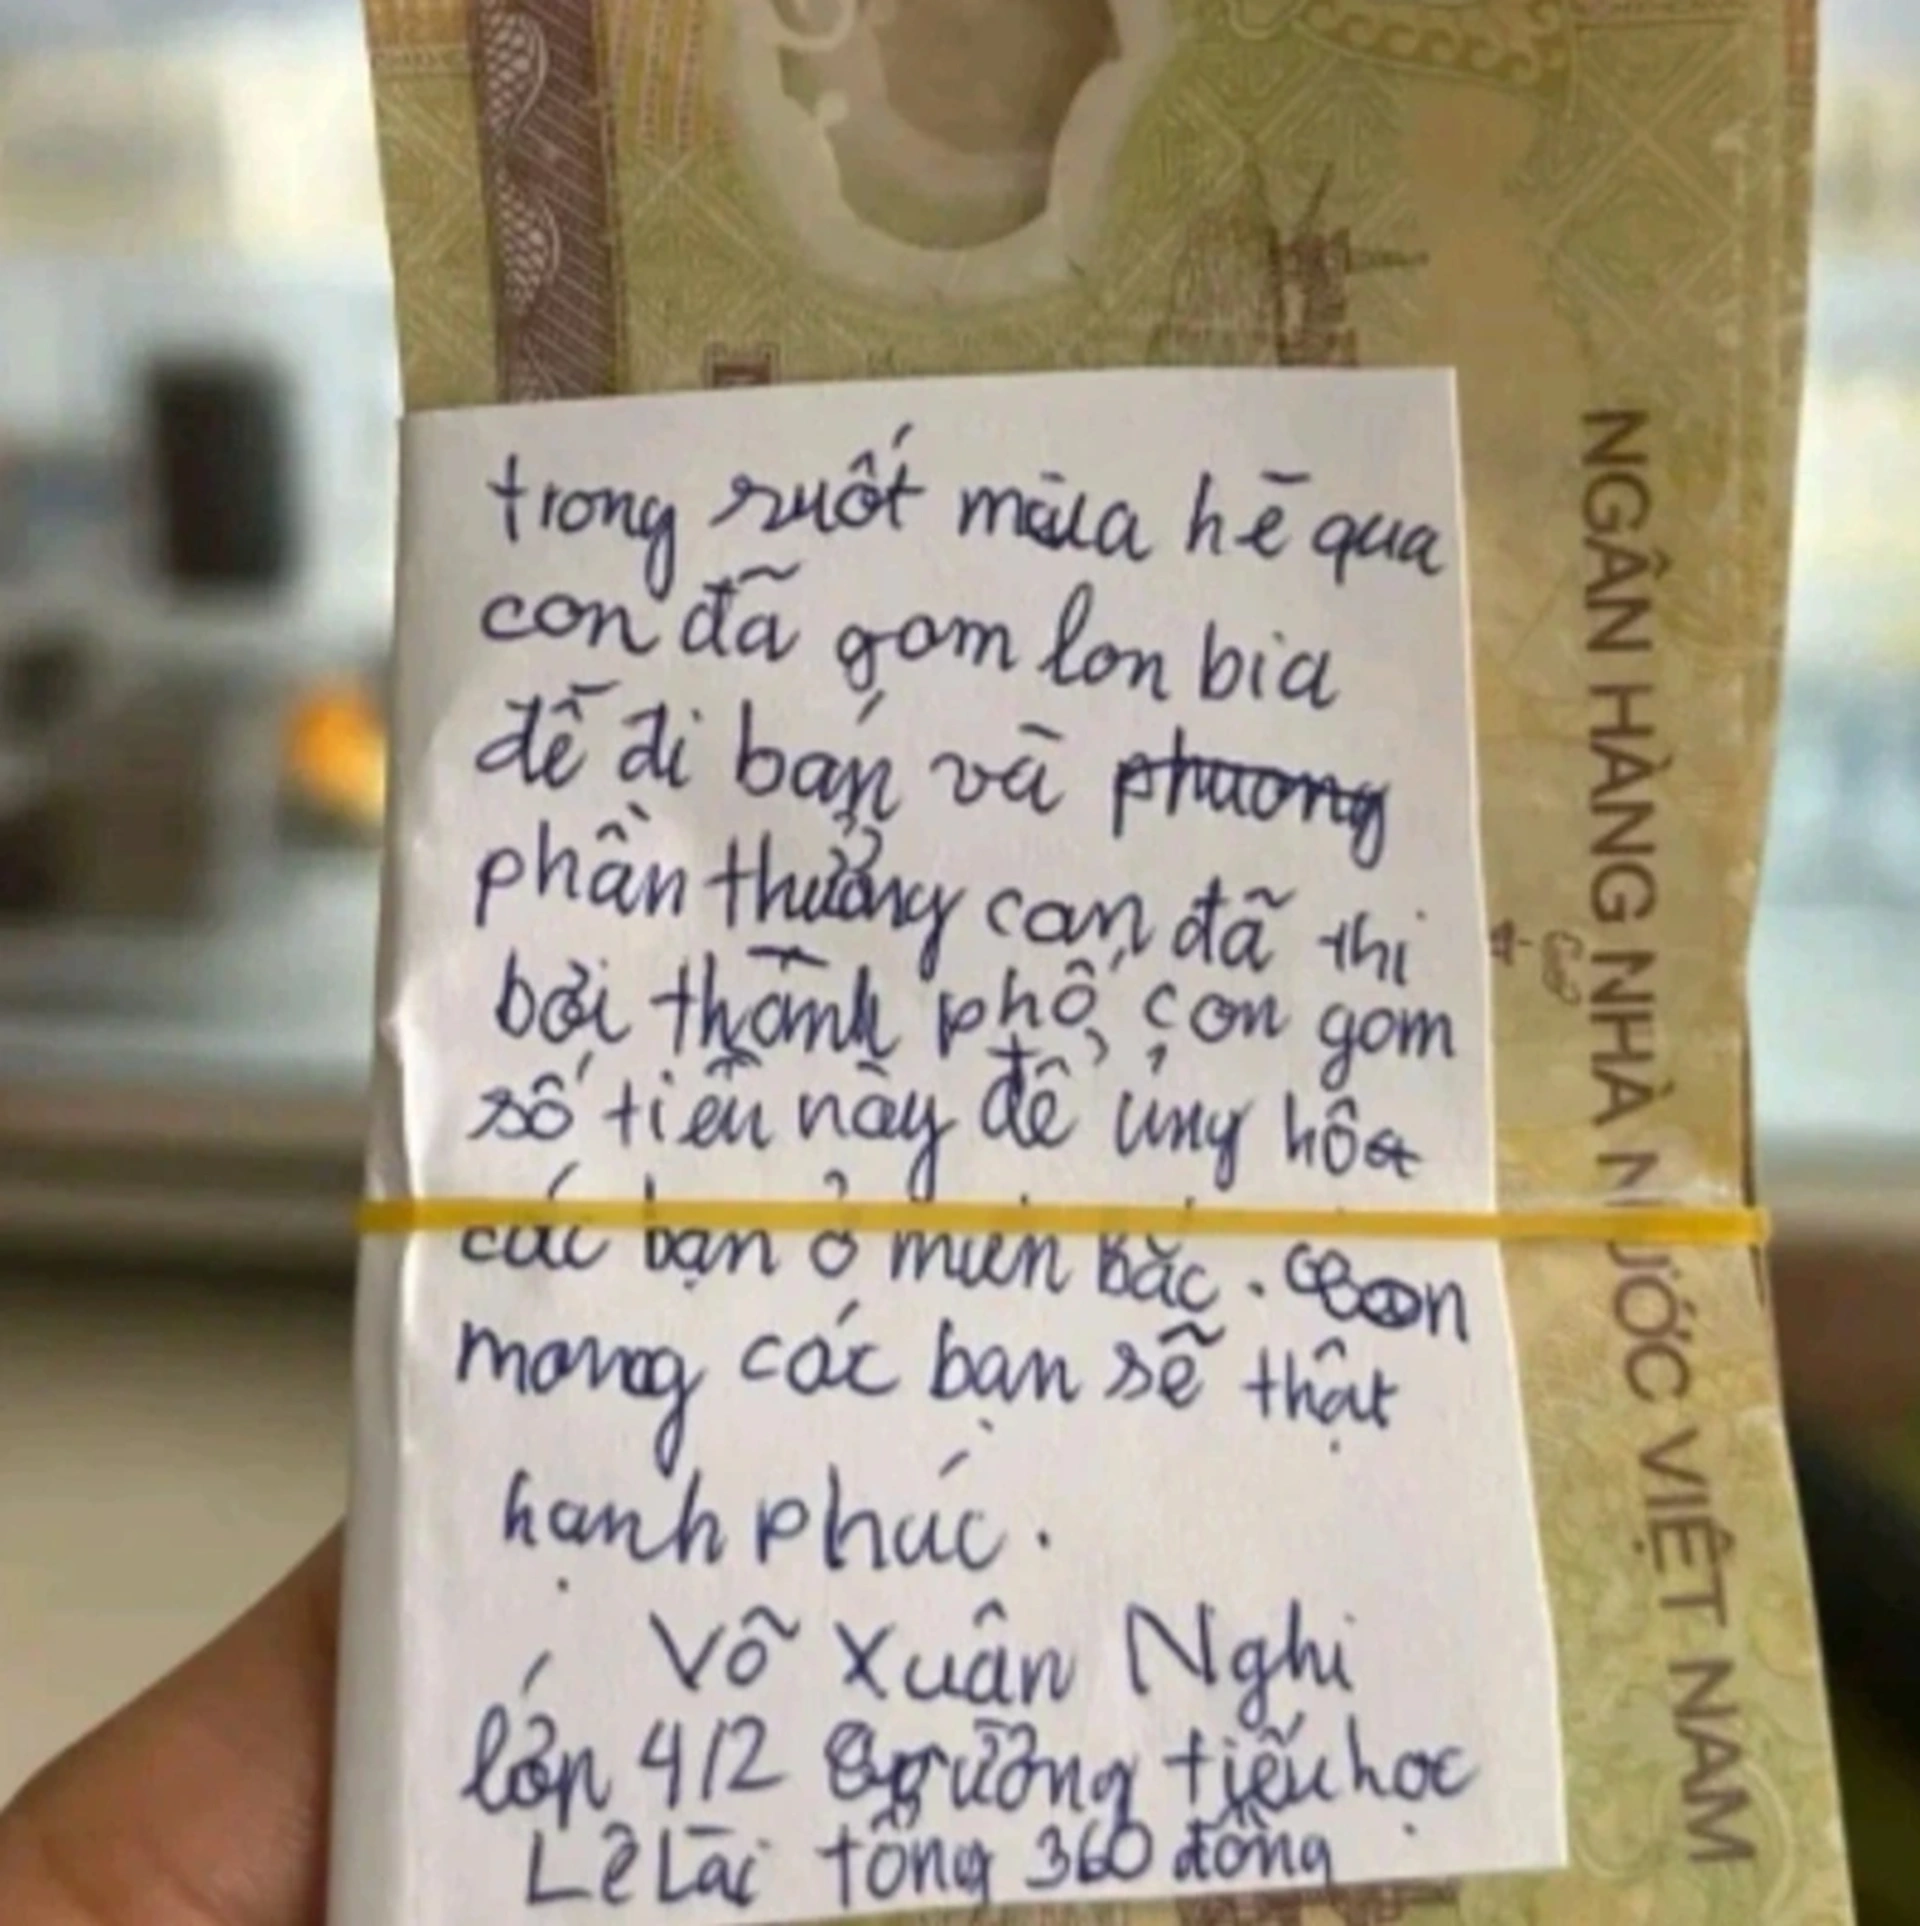 trong suốt mùa hè qua
con đã gom lon bia
để đi bán và phuong
phần thưởng con đã thi
bơi thành phố, con gom
số tiền này để ủng hộ
các bạn ở miền Bắc. Con
mong các bạn sẽ thật
hạnh phúc.
Võ Xuân Nghi
lớp 4/2 trường tiểu học
Lê Lai tổng 360 đồng
NGÂN HÀNG NHÀ NƯỚC VIỆT NAM